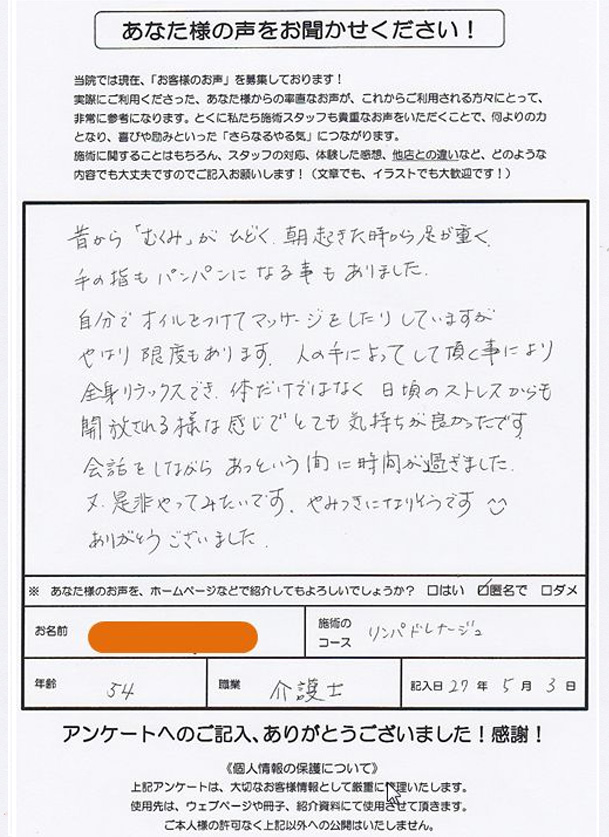 あなた様の声をお聞かせください！
当院では現在、「お客様のお声」を募集しております！
実際にご利用くださった、あなた様からの率直なお声が、これからご利用される方々にとって、
非常に参考になります。とくに私たち施術スタッフも貴重なお声をいただくことで、何よりの力
となり、喜びや励みといった「さらなるやる気」につながります。
施術に関することはもちろん、スタッフの対応、体験した感想、他店との違いなど、どのような
内容でも大丈夫ですのでご記入お願いします！（文章でも、イラストでも大歓迎です！）
昔から「むくみ」が ひどく、朝起きた時から足が重く、
手の指もパンパンになる事もありました。
自分でオイルをつけてマッサージをしたりしていますが
やはり限度もあります。人の手によってして頂く事により
全身リラックスでき、体だけではなく日頃のストレスからも
開放される様な感じでとても気持ちが良かったです。
会話をしながらあっという間に時間が過ぎました。
又、是非やってみたいです。やみつきになりそうです
ありがとうございました。
※ あなた様のお声を、ホームページなどで紹介してもよろしいでしょうか？ □はい ☑匿名で □ダメ
お名前 施術のコース リンパドレナージュ
年齢 54 職業 介護士 記入日 27 年 5 月 3 日
アンケートへのご記入、ありがとうございました！感謝！
《個人情報の保護について》
上記アンケートは、大切なお客様情報として厳重に管理いたします。
使用先は、ウェブページや冊子、紹介資料にて使用させて頂きます。
ご本人様の許可なく上記以外への公開はいたしません。